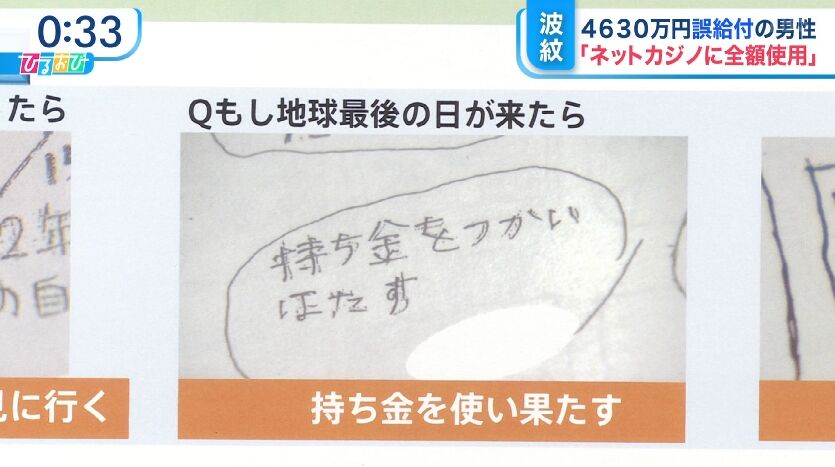 0:33
ひるおび
波紋
4630万円誤給付の男性
「ネットカジノに全額使用」
たら
Qもし地球最後の日が来たら
2年
の自
持ち金をつかい
はたす
に行く
持ち金を使い果たす